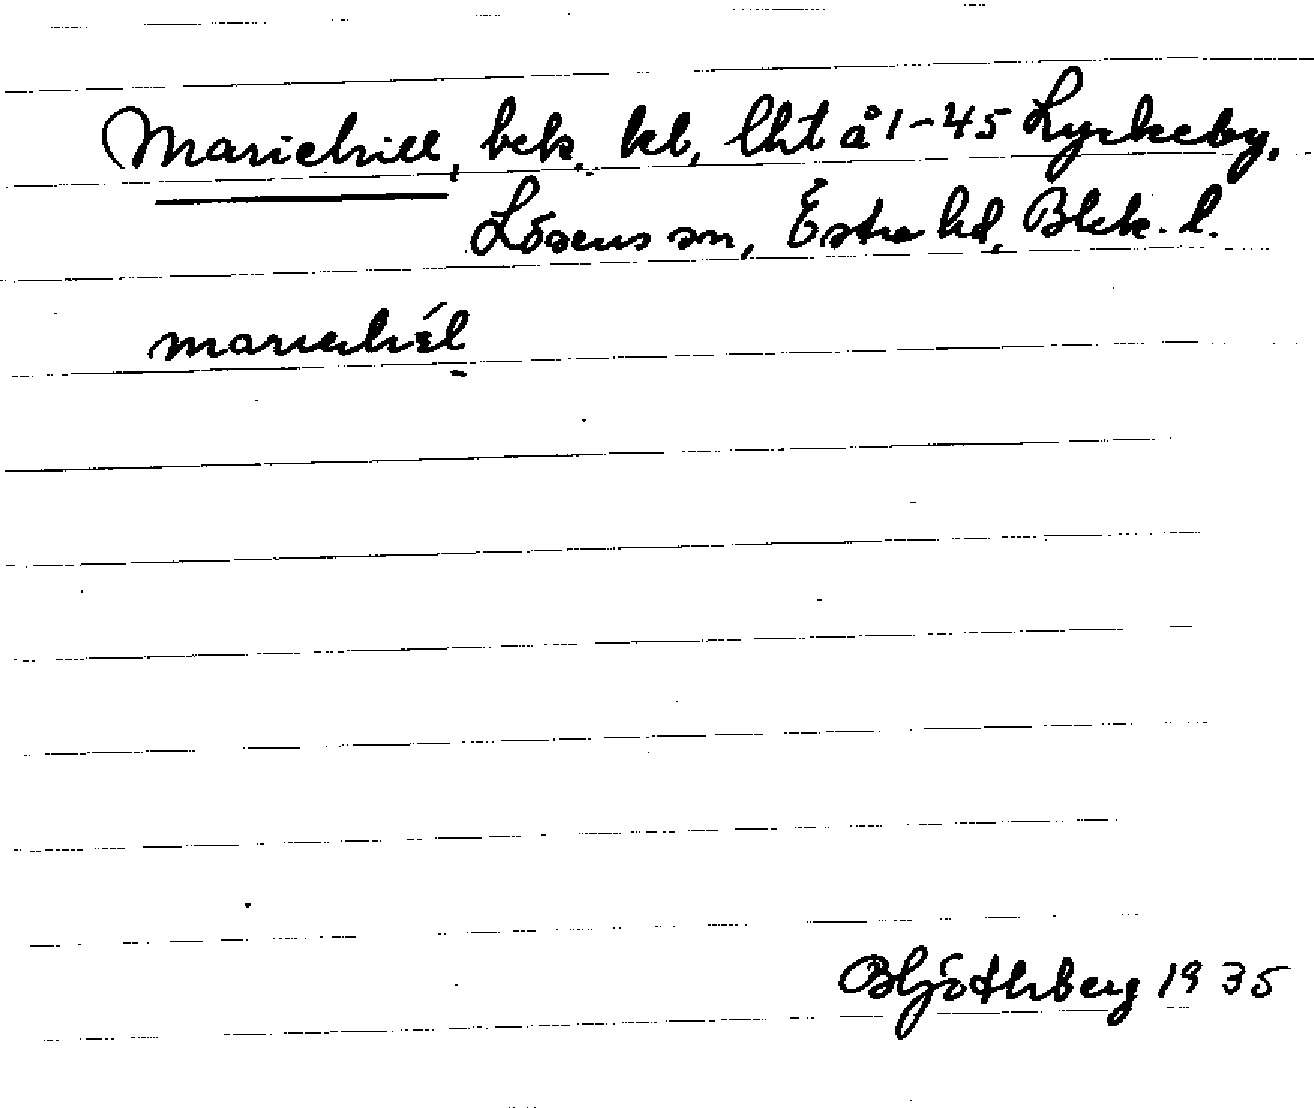 Mariehill, bek. kl, lht å 1-45 Lyckeby,
Lösens sn, Östra hd, Blek. l.
mariehíl
B Götlberg 1935